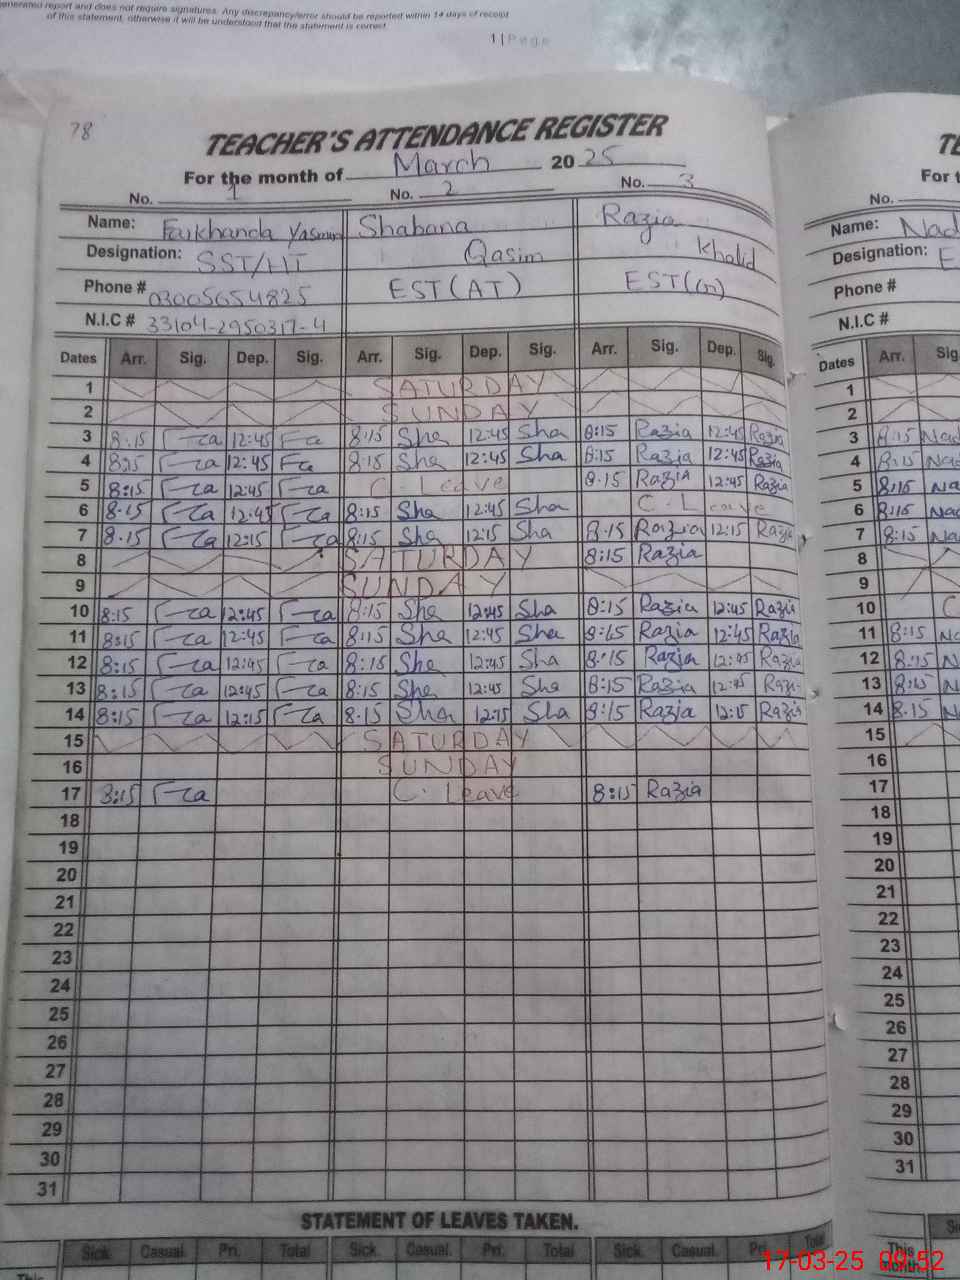 generated report and does not require signatures. Any discrepancy/error should be reported within 14 days of receipt
of this statement, otherwise it will be understood that the statement is correct.
1 | Page
78
TEACHER'S ATTENDANCE REGISTER
For the month of March 2025
No. 1 No. 2 No. 3
Name: Farkhanda Yasmin Shabana Razia
Designation: SST/HT Qasim Khalid
Phone # 03005654825 EST(AT) EST(G)
N.I.C # 33104-2950317-4
Dates Arr. Sig. Dep. Sig. Arr. Sig. Dep. Sig. Arr. Sig. Dep. Sig.
1 SATURDAY
2 SUNDAY
3 8:15 Fa 12:45 Fa 8:15 Sha 12:45 Sha 8:15 Razia 12:45 Razia
4 8:15 Fa 12:45 Fa 8:15 Sha 12:45 Sha 8:15 Razia 12:45 Razia
5 8:15 Fa 12:45 Fa C. Leave 8:15 Razia 12:45 Razia
6 8:15 Fa 12:45 Fa 8:15 Sha 12:45 Sha C. Leave
7 8:15 Fa 12:15 Fa 8:15 Sha 12:15 Sha 8:15 Razia 12:15 Razia
8 SATURDAY 8:15 Razia
9 SUNDAY
10 8:15 Fa 12:45 Fa 8:15 Sha 12:45 Sha 8:15 Razia 12:45 Razia
11 8:15 Fa 12:45 Fa 8:15 Sha 12:45 Sha 8:15 Razia 12:45 Razia
12 8:15 Fa 12:45 Fa 8:15 Sha 12:45 Sha 8:15 Razia 12:45 Razia
13 8:15 Fa 12:45 Fa 8:15 Sha 12:45 Sha 8:15 Razia 12:45 Razia
14 8:15 Fa 12:15 Fa 8:15 Sha 12:15 Sha 8:15 Razia 12:15 Razia
15 SATURDAY
16 SUNDAY
17 8:15 Fa C. Leave 8:15 Razia
18
19
20
21
22
23
24
25
26
27
28
29
30
31
STATEMENT OF LEAVES TAKEN.
Sick Casual. Pri. Total Sick Casual. Pri. Total Sick Casual. Pri. Total
This
TE
For t
No.
Name: Nad
Designation: E
Phone #
N.I.C #
Dates Arr. Sig
1
2
3 8:15 Nad
4 8:15 Na
5 8:15 Na
6 8:15 Nad
7 8:15 Na
8
9
10 C
11 8:15 Na
12 8:15 N
13 8:15 N
14 8:15 N
15
16
17
18
19
20
21
22
23
24
25
26
27
28
29
30
31
This
Month
17-03-25 09:52